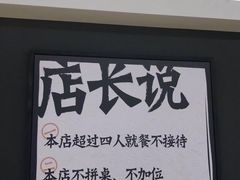 店长说
一 本店超过四人就餐不接待
二 本店不拼桌、不加位